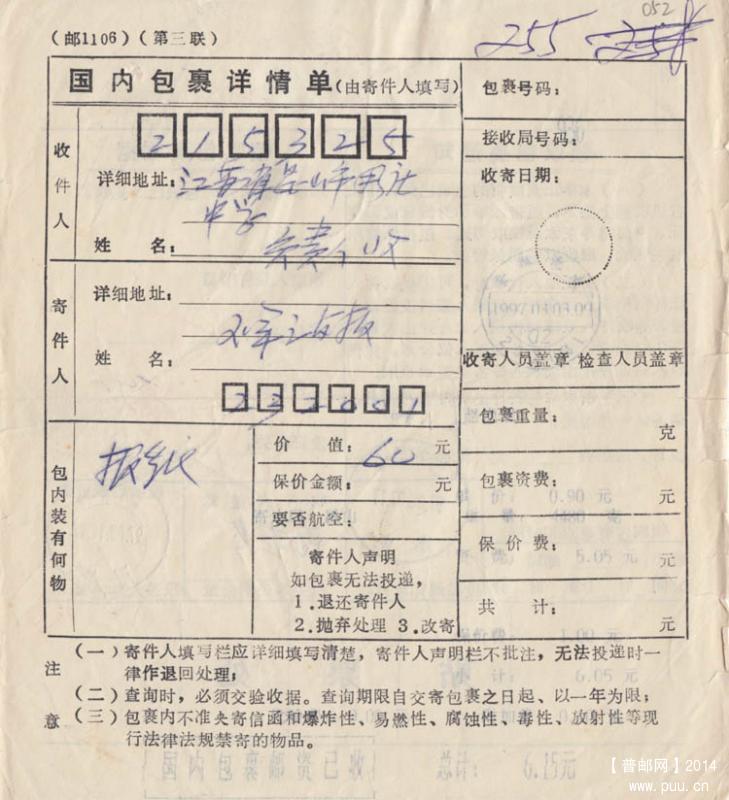 052
(邮1106)(第三联)
255
国内包裹详情单(由寄件人填写)
收件人
215325
详细地址:江苏省昆山市周庄
中学
姓 名:
收
寄件人
详细地址:
姓 名:
232001
包内装有何物
报纸
价 值:60元
保价金额: 元
要否航空:
寄件人声明
如包裹无法投递,
1.退还寄件人
2.抛弃处理 3.改寄
包裹号码:
接收局号码:
收寄日期:
1997.03.03.09
收寄人员盖章 检查人员盖章
包裹重量: 克
包裹资费: 元
0.90 元
保价费: 元
5.05 元
共 计: 元
1.00 元
6.05 元
注意
(一)寄件人填写栏应详细填写清楚,寄件人声明栏不批注,无法投递时一
律作退回处理;
(二)查询时,必须交验收据。查询期限自交寄包裹之日起、以一年为限;
(三)包裹内不准夹寄信函和爆炸性、易燃性、腐蚀性、毒性、放射性等现
行法律法规禁寄的物品。
国内包裹邮资已收
总计: 6.15元
【普邮网】2014
www.puu.cn